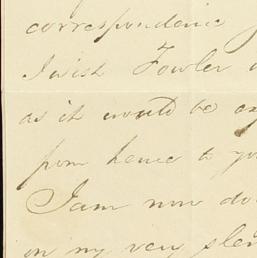 correspondence
I wish Fowler
as it would be
from hence to
I am now
on my very